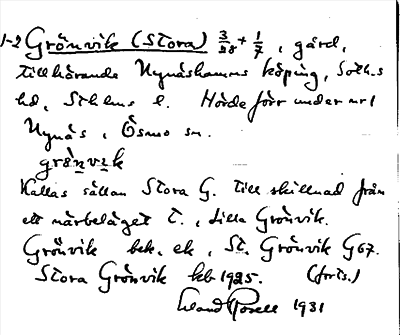 1-2 Grönvik (Stora) 3/28 + 1/7, gård,
tillhörande Nynäshamns köping, Soth.s
hd, Sthlms l. Hörde förr under nr 1
Nynäs, Ösmo sn.
grönvik
Kallas sällan Stora G. till skillnad från
ett närbeläget t., Lilla Grönvik.
Grönvik bek. ek, St. Grönvik G67.
Stora Grönvik kb 1925. (forts.)
1931